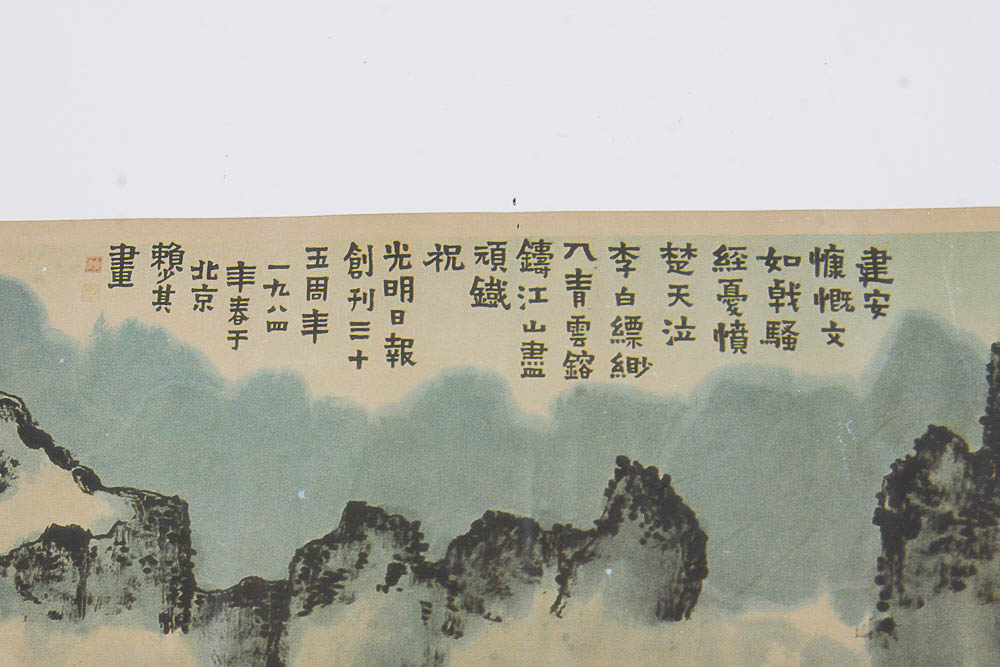 建安
慷慨文
如戟騷
經憂憤
楚天泣
李白縹緲
入青雲鎔
鑄江山盡
頑鐵
祝
光明日報
創刊三十
五周年
一九八四
年春于
北京
賴少其
書畫